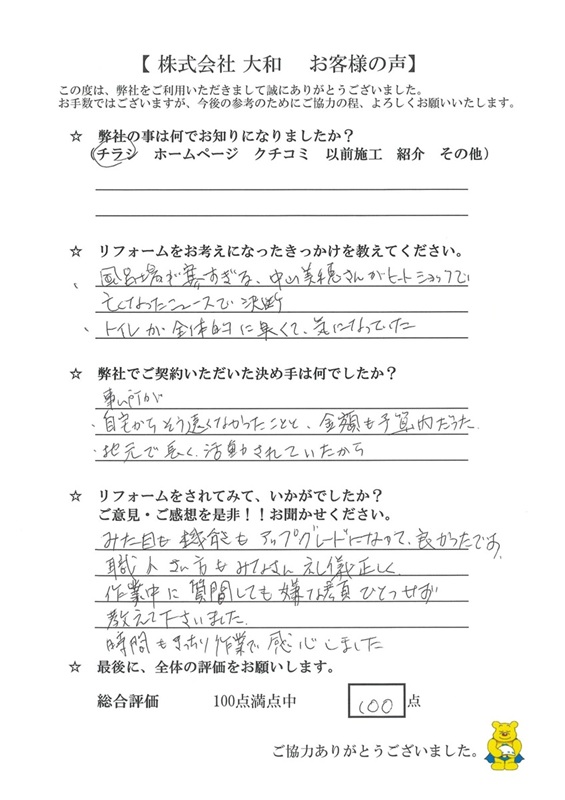 【 株式会社 大和 お客様の声】
この度は、弊社をご利用いただきまして誠にありがとうございました。
お手数ではございますが、今後の参考のためにご協力の程、よろしくお願いいたします。
☆ 弊社の事は何でお知りになりましたか？
（チラシ ホームページ クチコミ 以前施工 紹介 その他）
☆ リフォームをお考えになったきっかけを教えてください。
、風呂場が寒すぎる、中山美穂さんがヒートショックで
亡くなったニュースで決断
、トイレが全体的に臭くて、気になっていた
☆ 弊社でご契約いただいた決め手は何でしたか？
事ム所が
・自宅からそう遠くなかったことと、金額も予算内だった
・地元で長く、活動されていたから
☆ リフォームをされてみて、いかがでしたか？
ご意見・ご感想を是非！！お聞かせください。
みた目も機能もアップグレードになって、良かったです。
職人さん方もみなさん礼儀正しく、
作業中に質問しても嫌な顔ひとつせず
教えて下さいました。
時間もきっちり作業で感心しました
☆ 最後に、全体の評価をお願いします。
総合評価 100点満点中 100 点
ご協力ありがとうございました。